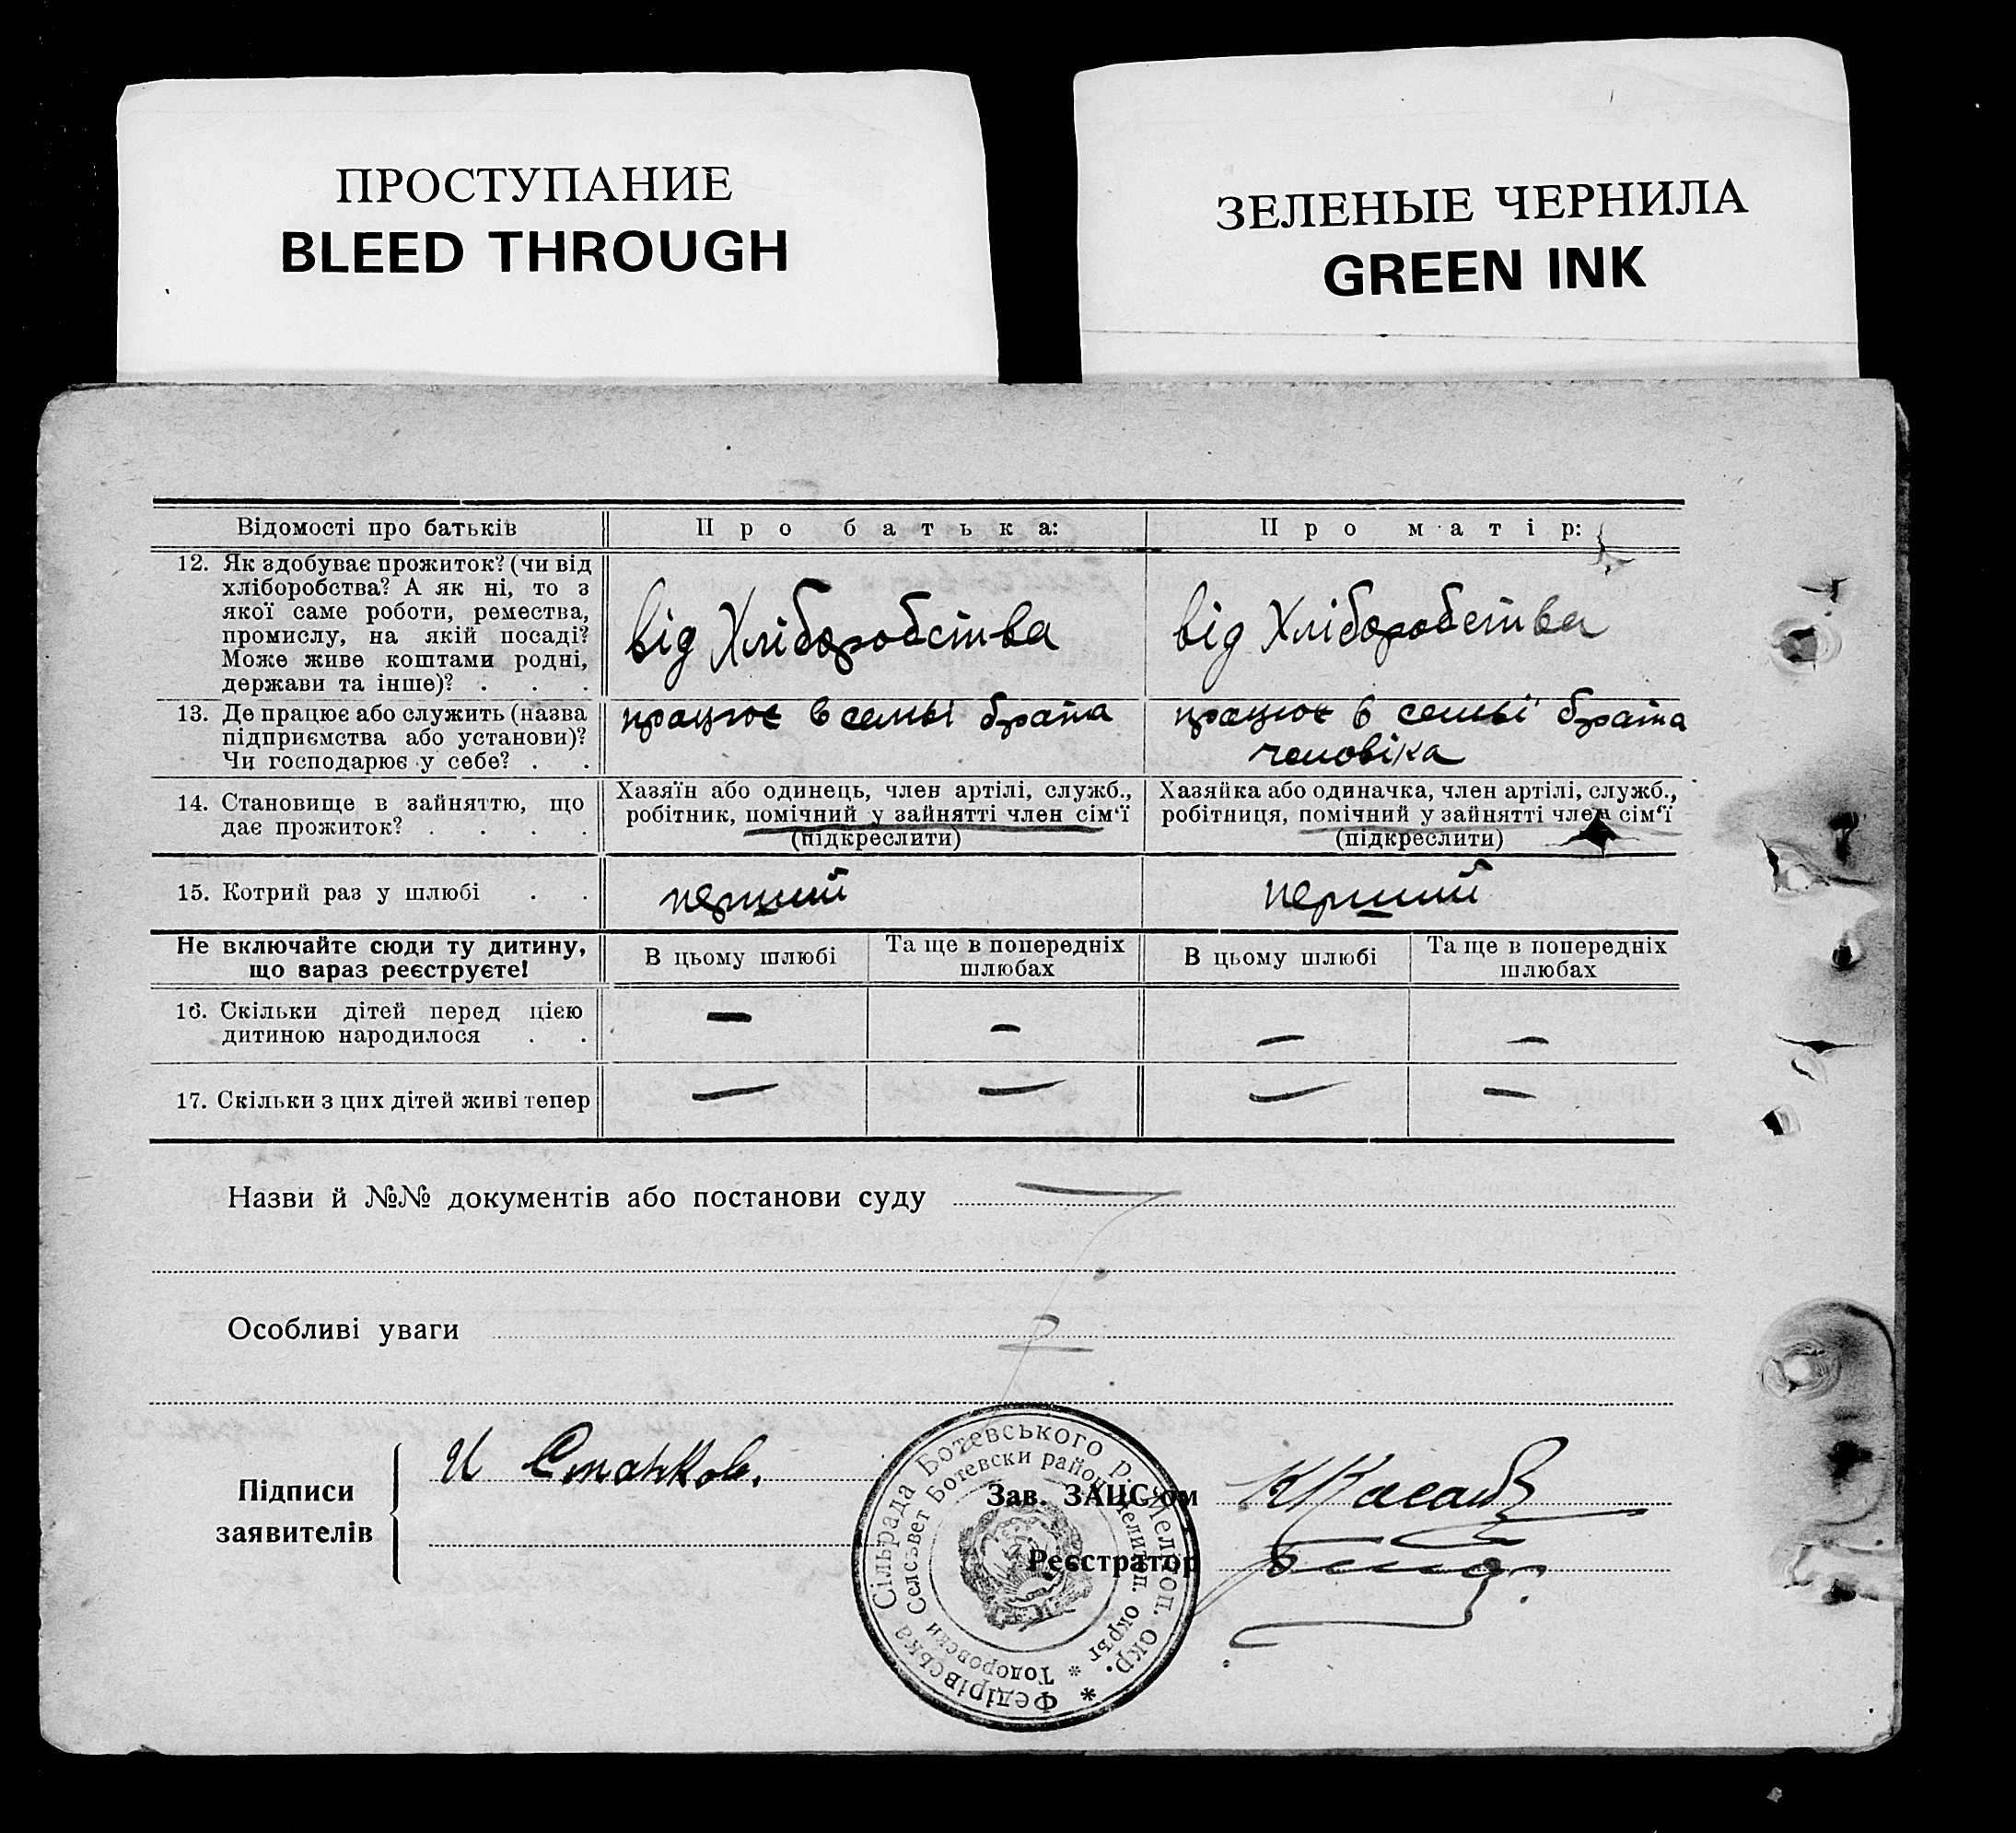 ПРОСТУПАНИЕ
BLEED THROUGH
ЗЕЛЕНЫЕ ЧЕРНИЛА
GREEN INK
Відомості про батьків
Про батька:
Про матір:
12. Як здобуває прожиток? (чи від
хліборобства? А як ні, то з
якої саме роботи, ремества,
промислу, на якій посаді?
Може живе коштами родні,
держави та інше)? . . .
від Хліборобства
від Хліборобства
13. Де працює або служить (назва
підприємства або установи)?
Чи господарює у себе? . .
працює в семьі брата
працює в семьі брата
чоловіка
14. Становище в зайняттю, що
дає прожиток? . . . .
Хазяїн або одинець, член артілі, служб.,
робітник, помічний у зайнятті член сім‘ї
(підкреслити)
Хазяйка або одиначка, член артілі, служб.,
робітниця, помічний у зайнятті член сім‘ї
(підкреслити)
15. Котрий раз у шлюбі . .
перший
перший
Не включайте сюди ту дитину,
що зараз реєструєте!
В цьому шлюбі
Та ще в попередніх
шлюбах
В цьому шлюбі
Та ще в попередніх
шлюбах
16. Скільки дітей перед цією
дитиною народилося . .
—
—
—
—
17. Скільки з цих дітей живі тепер
—
—
—
—
Назви й №№ документів або постанови суду
Особливі уваги
Підписи
заявителів
И Станков.
Зав. ЗАЦС‘ом
Реєстратор
Федірівська Сільрада Ботевського р. Мелітоп. окр. *
Тодоровски Селсъвет Ботевски район Мелитоп. окръг *